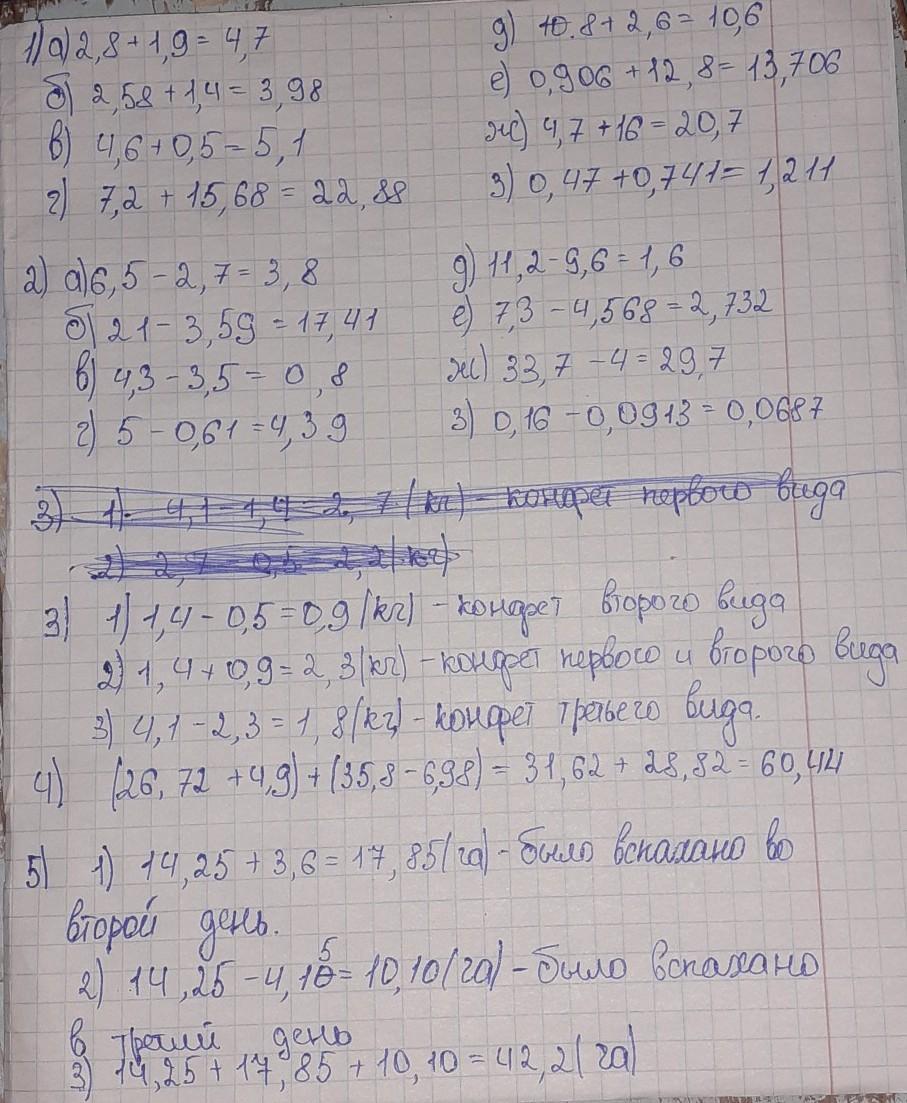 1) а) 2,8 + 1,9 = 4,7
б) 2,58 + 1,4 = 3,98
в) 4,6 + 0,5 = 5,1
г) 7,2 + 15,68 = 22,88
д) 10.8 + 2,6 = 10,6
е) 0,906 + 12,8 = 13,706
ж) 4,7 + 16 = 20,7
з) 0,47 + 0,741 = 1,211
2) а) 6,5 - 2,7 = 3,8
б) 21 - 3,59 = 17,41
в) 4,3 - 3,5 = 0,8
г) 5 - 0,61 = 4,39
д) 11,2 - 9,6 = 1,6
е) 7,3 - 4,568 = 2,732
ж) 33,7 - 4 = 29,7
з) 0,16 - 0,0913 = 0,0687
3) 1) 4,1 - 1,4 = 2,7 (кг) - конфет первого вида
2) 2,7 - 0,5 = 2,2 (кг)
3) 1) 1,4 - 0,5 = 0,9 (кг) - конфет второго вида
2) 1,4 + 0,9 = 2,3 (кг) - конфет первого и второго вида
3) 4,1 - 2,3 = 1,8 (кг) - конфет третьего вида.
4) (26,72 + 4,9) + (35,8 - 6,98) = 31,62 + 28,82 = 60,44
5) 1) 14,25 + 3,6 = 17,85 (га) - было вспахано во
второй день.
2) 14,25 - 4,15 = 10,10 (га) - было вспахано
в третий день
3) 14,25 + 17,85 + 10,10 = 42,2 (га)